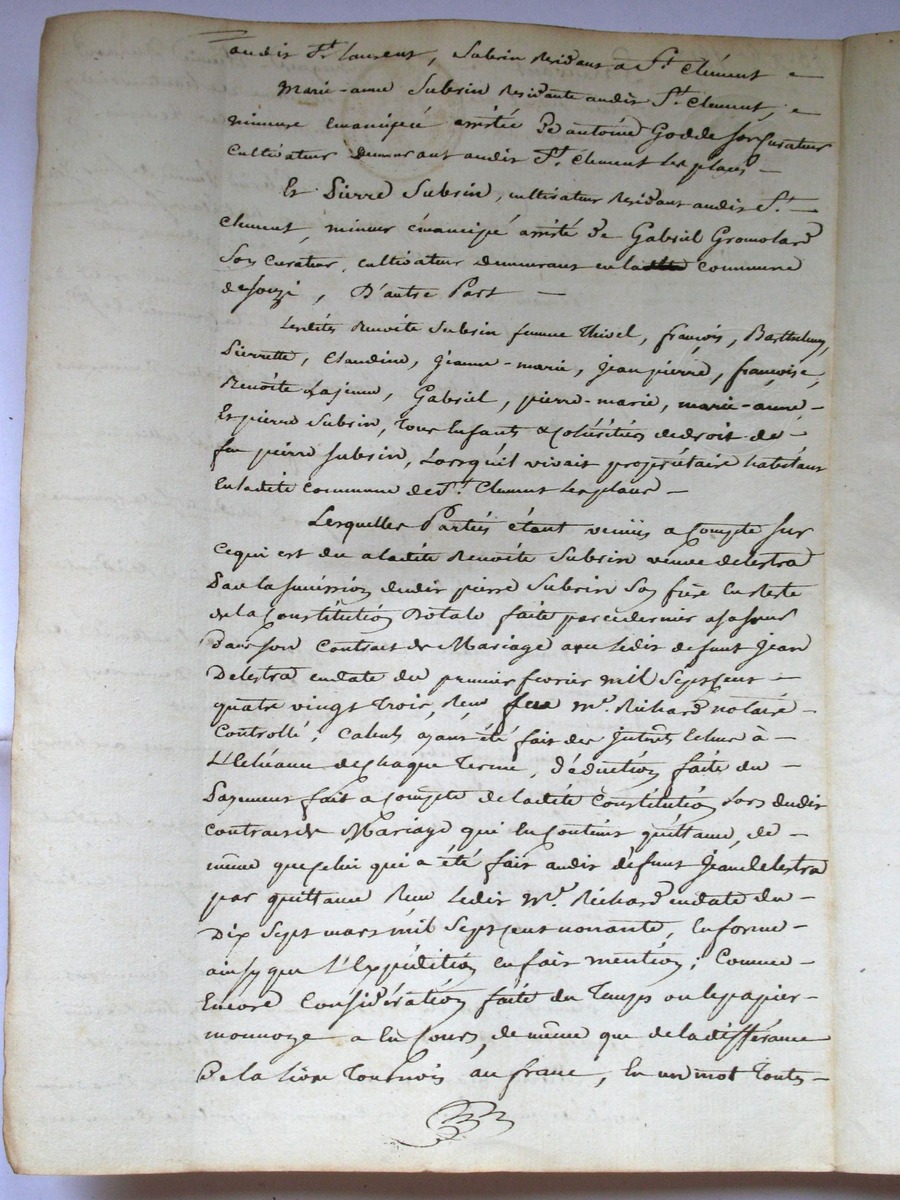 audit St. Laurent, Subrin residant a St. Clément —
Marie-anne Subrin residante audit St. Clement,
mineure émancipée assistée de antoine Godde son curateur
Cultivateur demeurant audit St. Clement les places —
Et Pierre Subrin, cultivateur residant audit St. —
Clement, mineur émancipé assisté de Gabriel Gromolard
Son curateur, cultivateur demeurant en la commune
de souzi, D'autre Part —
Lesdits Benoite Subrin femme Thivel, françois, Barthelemy,
Pierrette, Claudine, Jeanne-marie, Jean pierre, françoise,
Benoite Lajeune, Gabriel, pierre-marie, marie-anne -
Et pierre Subrin, tous Enfants & cohéritiers de droit de -
feu pierre Subrin, Lorsqu'il vivait propriétaire habitant
En ladite commune de St. Clement les places —
Lesquelles Parties étant venues a Compte sur
Ce qui est du a ladite Benoite Subrin veuve delestra
Par la succession dudit pierre Subrin Son frère En reste
de la Constitution Dotale faite par ce dernier a sa soeur
Dans son Contrat de Mariage avec Ledit defunt Jean
Delestra en date du premier fevrier mil Sept Cent -
quatre vingt trois, Reçu Me. Richard notaire -
Controllé; Calcul ayant été fait des Interets Echus à -
L'Echéance de chaque Terme, Déduction faite du -
Payement fait a compte de ladite Constitution Lors dudit
Contrat de Mariage qui En Contient quittance, de -
même que celui qui a été fait audit défunt Jean Delestra
par quittance Reçue Ledit Me. Richard en date du -
Dix Sept mars mil Sept Cent nonante, En forme -
ainsy que L'Expédition en fait mention; Comme -
Encore Considération faite du Temps ou le papier -
monnoye a Eu Cours, de même que de la différence
De la Livre Tournois au franc, En un mot Toute -